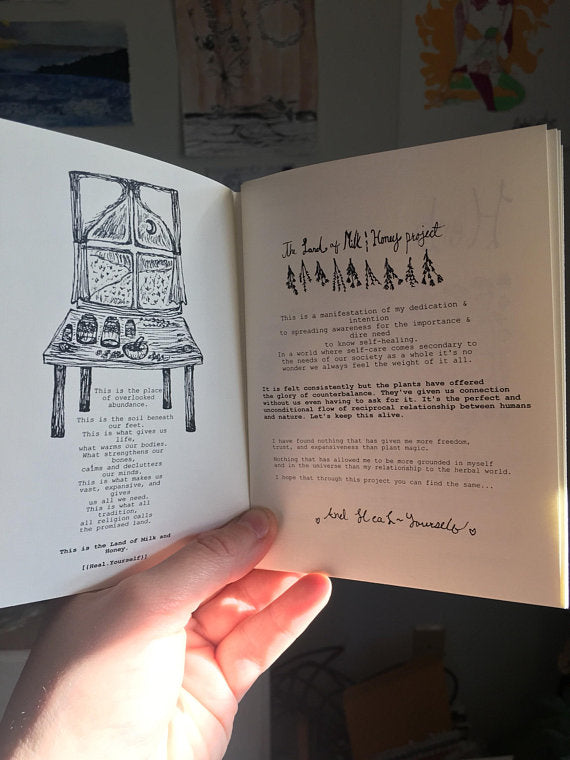 This is the place
of overlooked
abundance.
This is the soil beneath
our feet.
This is what gives us
life,
what warms our bodies.
What strengthens our
bones,
calms and declutters
our minds.
This is what makes us
vast, expansive, and
gives
us all we need.
This is what all
tradition,
all religion calls
the promised land.
This is the Land of Milk and
Honey.
[(Heal.Yourself)]
The Land of Milk & Honey project
This is a manifestation of my dedication &
intention
to spreading awareness for the importance &
dire need
to know self-healing.
In a world where self-care comes secondary to
the needs of our society as a whole it's no
wonder we always feel the weight of it all.
It is felt consistently but the plants have offered
the glory of counterbalance. They've given us connection
without us even having to ask for it. It's the perfect and
unconditional flow of reciprocal relationship between humans
and nature. Let's keep this alive.
I have found nothing that has given me more freedom,
trust, and expansiveness than plant magic.
Nothing that has allowed me to be more grounded in myself
and in the universe than my relationship to the herbal world.
I hope that through this project you can find the same...
And Heal~Yourself